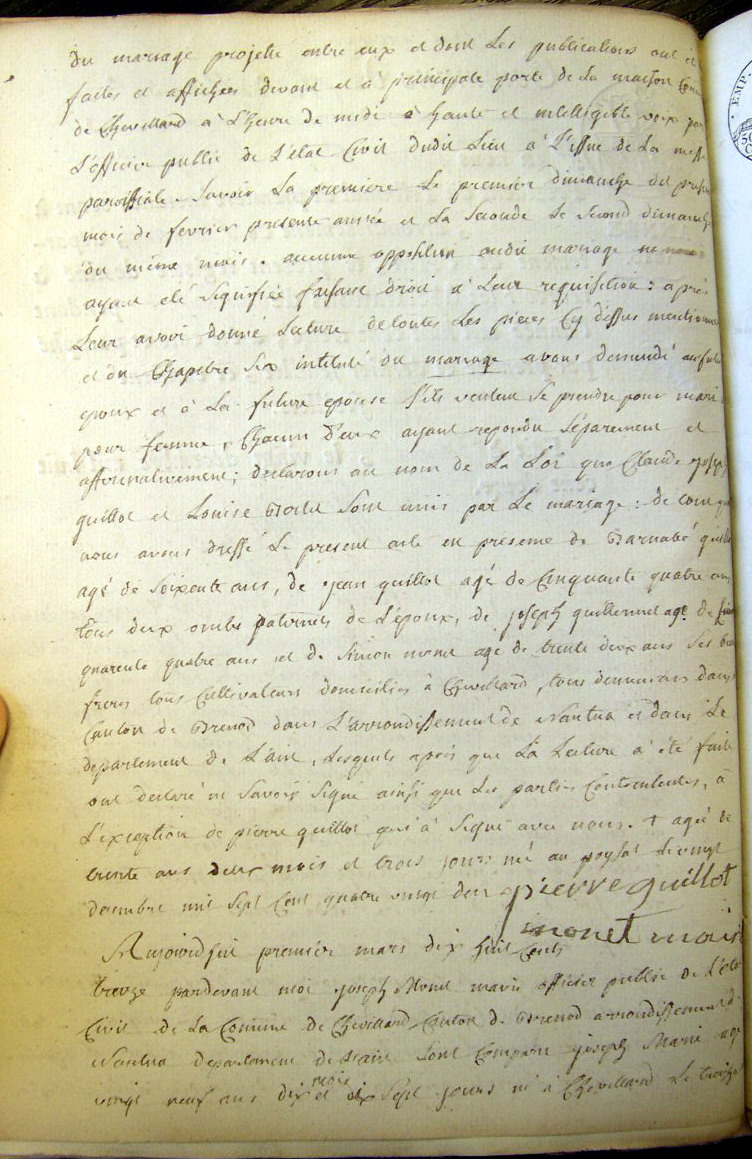 du mariage projetté entre eux et dont Les publications ont été
faites et affichées devant et a principale porte de La maison Com
de Chevillard à L'heure de midi à haute et intelligible voix par
L'officier public de L'état Civil dudit Lieu à L'issue de La messe
paroissiale. Savoir La premiere Le premier dimanche du présent
mois de fevrier presente année et La Seconde Le Second dimanche
du même mois. aucunne opposition audit mariage ne nous
ayant été Signifiée faisant droit à Leur requisition: après
Leur avoir donné Lecture de toutes Les pieces Cy dessus mentionnées
et du Chapitre Six intitulé du mariage avons demandé au futur
epoux et à La future epouse S'ils veulent Se prendre pour mari
pour femme, Chacun d'eux ayant repondu Séparement et
affirmativement; declarons au nom de La Loi que Claude joseph
guillot et Louise Sont unis par Le mariage: de tout quoi
nous avons dressé Le present acte en presence de Barnabé guillot
agé de Soixente ans, de jean guillot agé de Cinquante quatre ans
tous deux oncles paternels de L'époux, de joseph guillermet agé de
quarente quatre ans et de Simon monet agé de trente deux ans Ses beau
freres tous Cultivateurs domiciliés à Chevillard, tous demeurans dans
Canton de Brenod dans L'arrondissement de Nantua et dans Le
departement de L'ain, Lesquels après que La Lecture a été faite
ont declaré ne Savoir Signé ainsi que Les parties Contractantes, à
L'exception de pierre guillot qui a Signé avec nous. + agée de
trente ans deux mois et trois jours né au poysat Le vingt
decembre mil Sept Cent quatre vingt deux pierre guillot
monet maire
Aujourd'hui premier mars dix huit Cents
treize pardevant moi joseph Monet maire officier public de L'état
Civil de La Comune de Chevillard Canton de Brenod arrondissement de
Nantua departement de L'ain Sont Comparu joseph Marie agé
vingt neuf ans dix mois et dix Sept jours né à Chevillard Le treize
EMP.